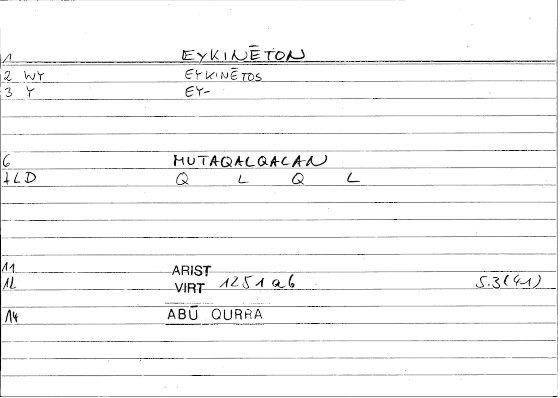 1 EYKINĒTON
2 WY EYKINĒTOS
3 Y EY-
6 MUTAQALQALAN
7LD Q L Q L
11 ARIST
12 VIRT 1251 a6 5.3(4-1)
14 ABŪ QURRA